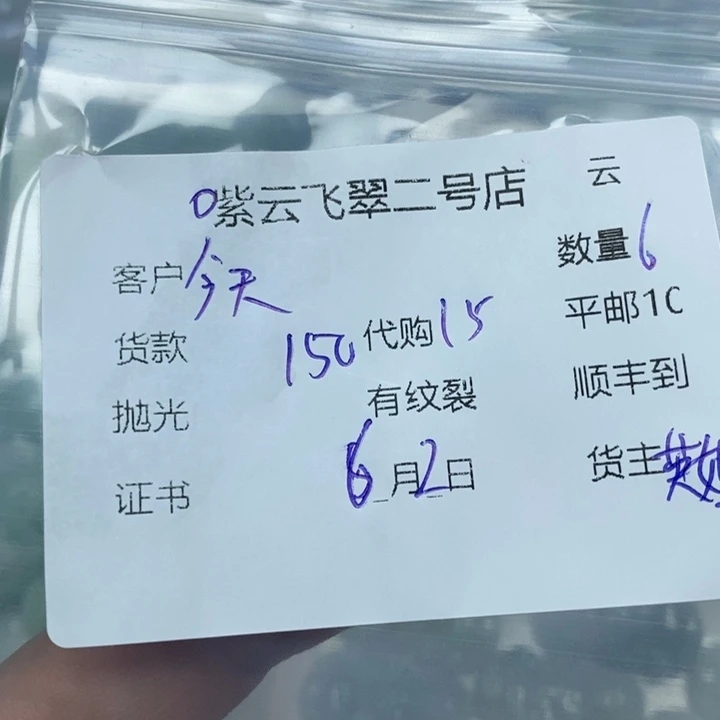 0紫云飞翠二号店 云
客户今天 数量6
货款150 代购15 平邮1C
抛光 有纹裂 顺丰到
证书 6月2日 货主英姐